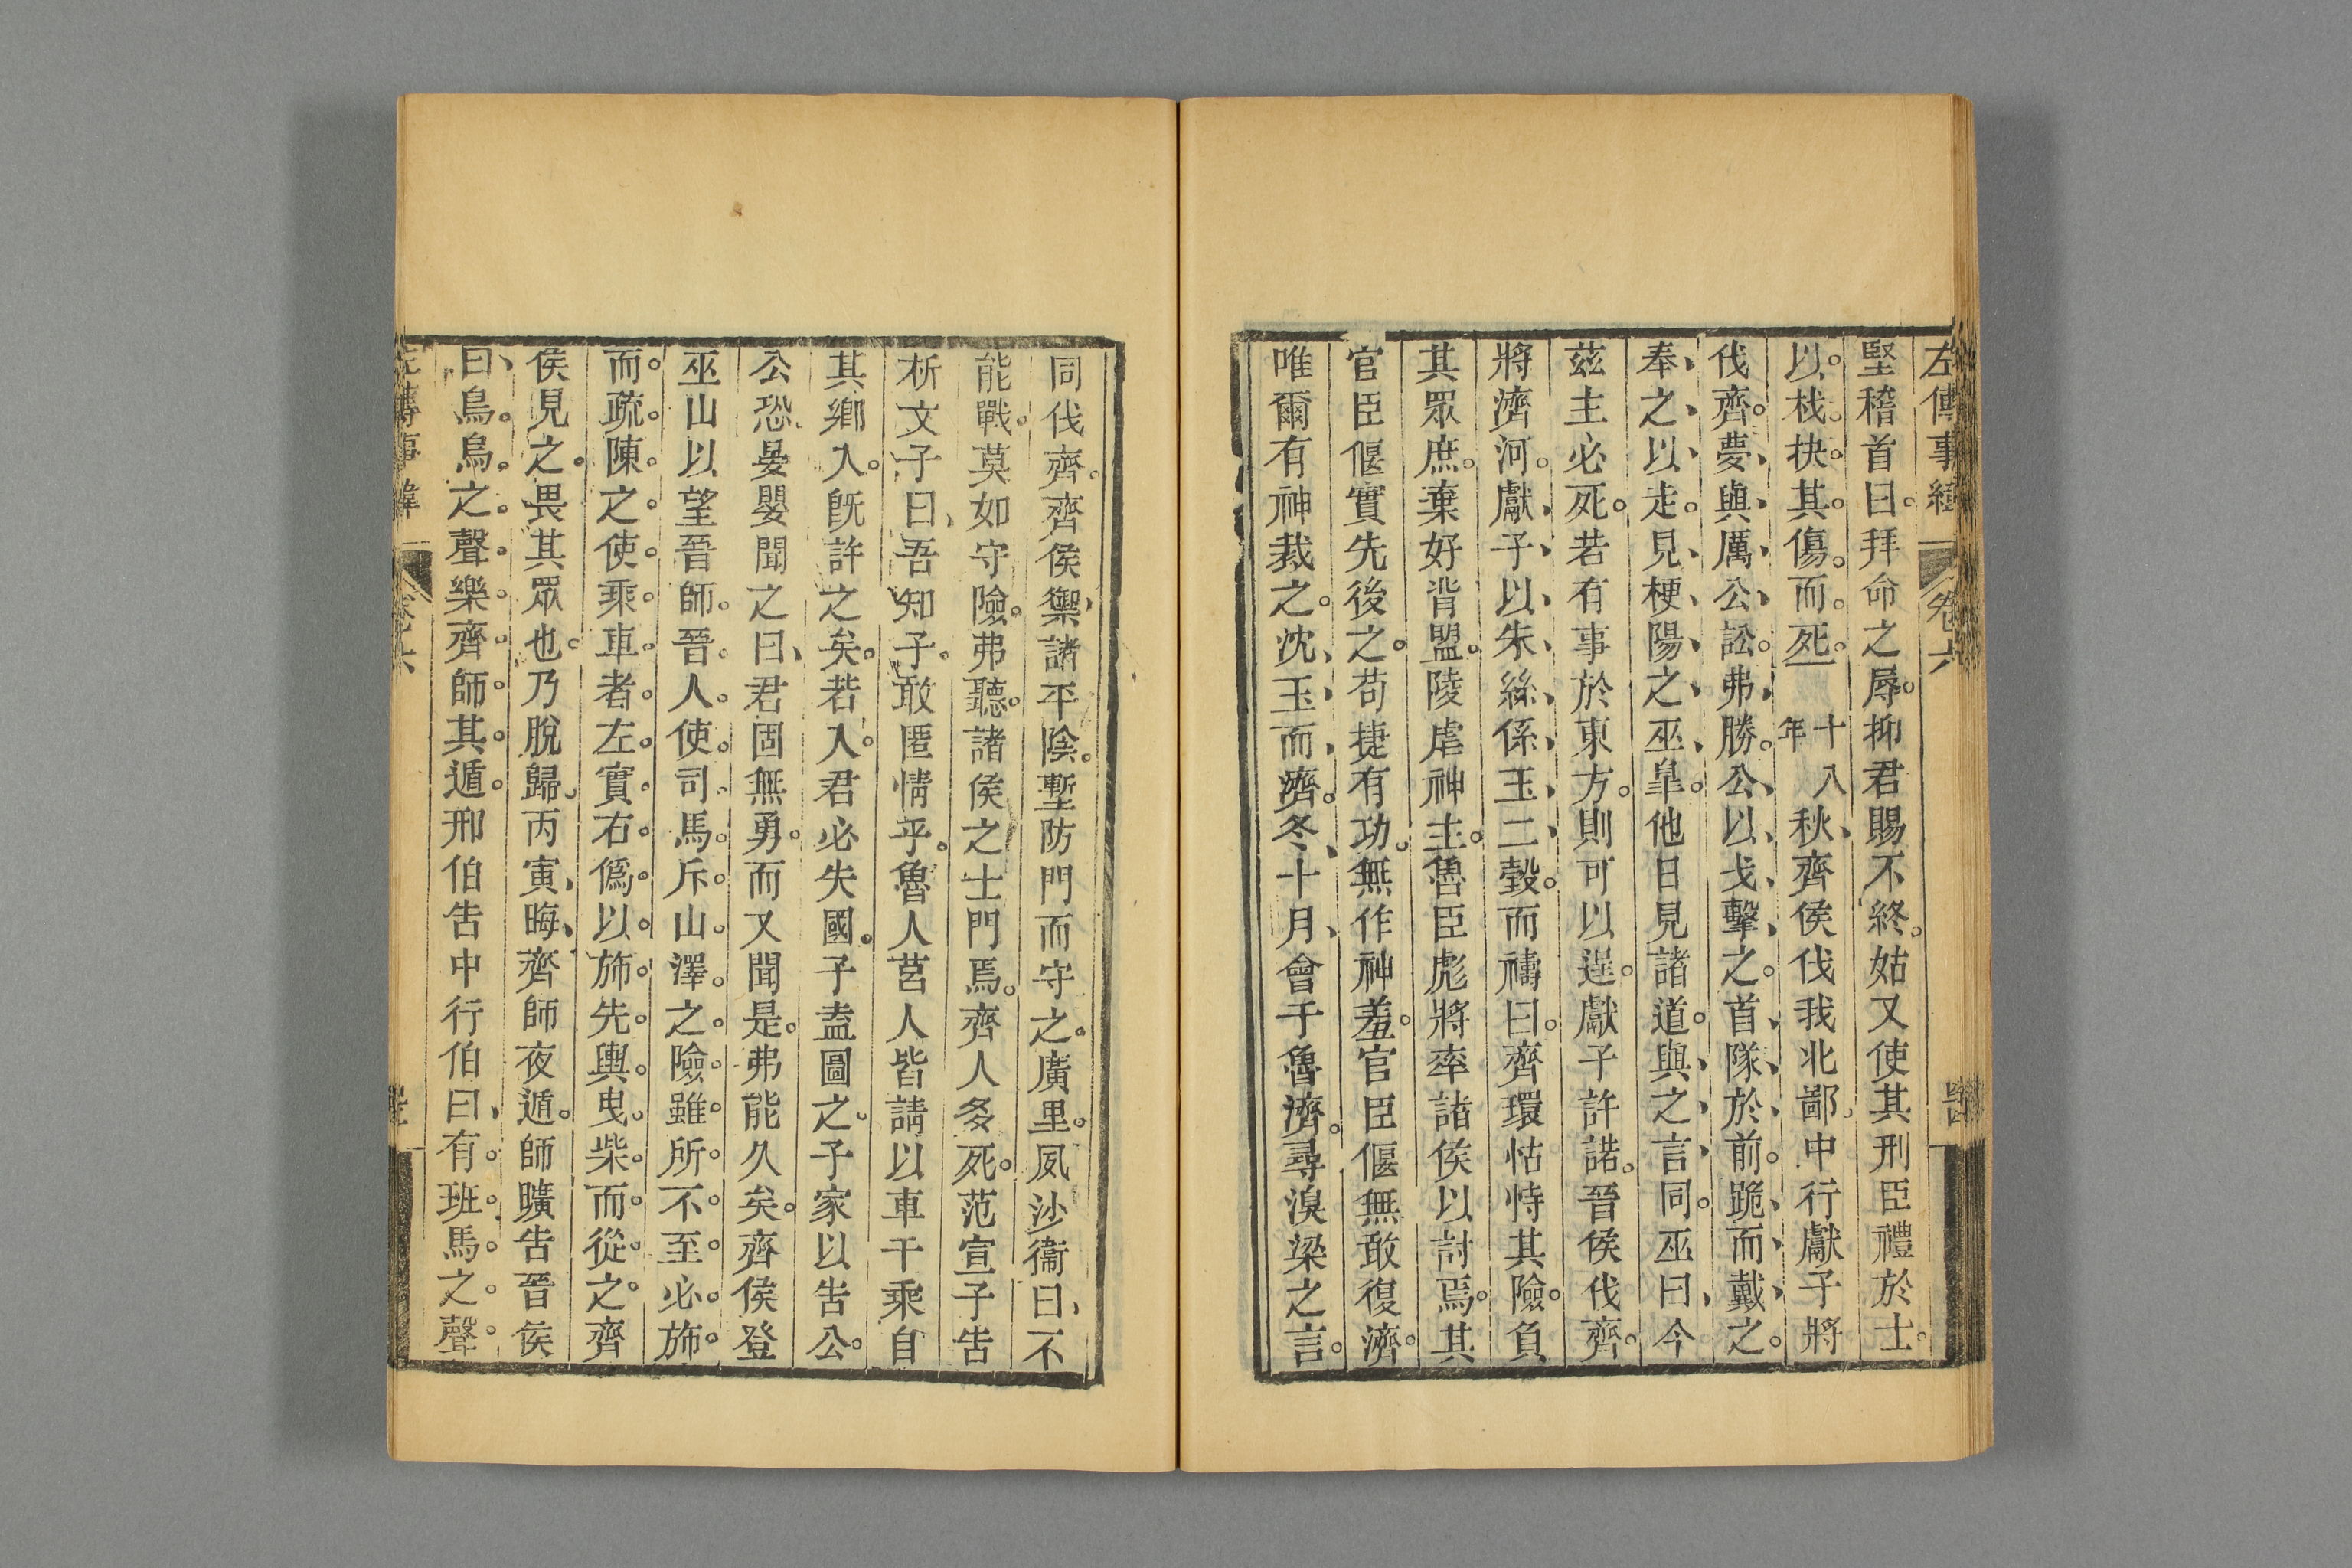 左傳事緯
卷六
堅稽首曰拜命之辱抑君賜不終姑又使其刑臣禮於士
以杙抉其傷而死
十八
年
秋齊侯伐我北鄙中行獻子將
伐齊夢與厲公訟弗勝公以戈擊之首隊於前跪而戴之
奉之以走見梗陽之巫臯他日見諸道與之言同巫曰今
茲主必死若有事於東方則可以逞獻子許諾晉侯伐齊
將濟河獻子以朱絲係玉二瑴而禱曰齊環怙恃其險負
其眾庶棄好背盟陵虐神主曾臣彪將率諸侯以討焉其
官臣偃實先後之苟捷有功無作神羞官臣偃無敢復濟
唯爾有神裁之沈玉而濟冬十月會于魯濟尋溴梁之言
同伐齊齊侯禦諸平陰塹防門而守之廣里夙沙衞曰不
能戰莫如守險弗聽諸侯之士門焉齊人多死范宣子告
析文子曰吾知子敢匿情乎魯人莒人皆請以車千乘自
其鄉入既許之矣若入君必失國子盍圖之子家以告公
公恐晏嬰聞之曰君固無勇而又聞是弗能久矣齊侯登
巫山以望晉師晉人使司馬斥山澤之險雖所不至必斾
而疏陳之使乘車者左實右僞以斾先輿曳柴而從之齊
侯見之畏其眾也乃脫歸丙寅晦齊師夜遁師曠告晉侯
曰鳥烏之聲樂齊師其遁邢伯告中行伯曰有班馬之聲
左傳事緯